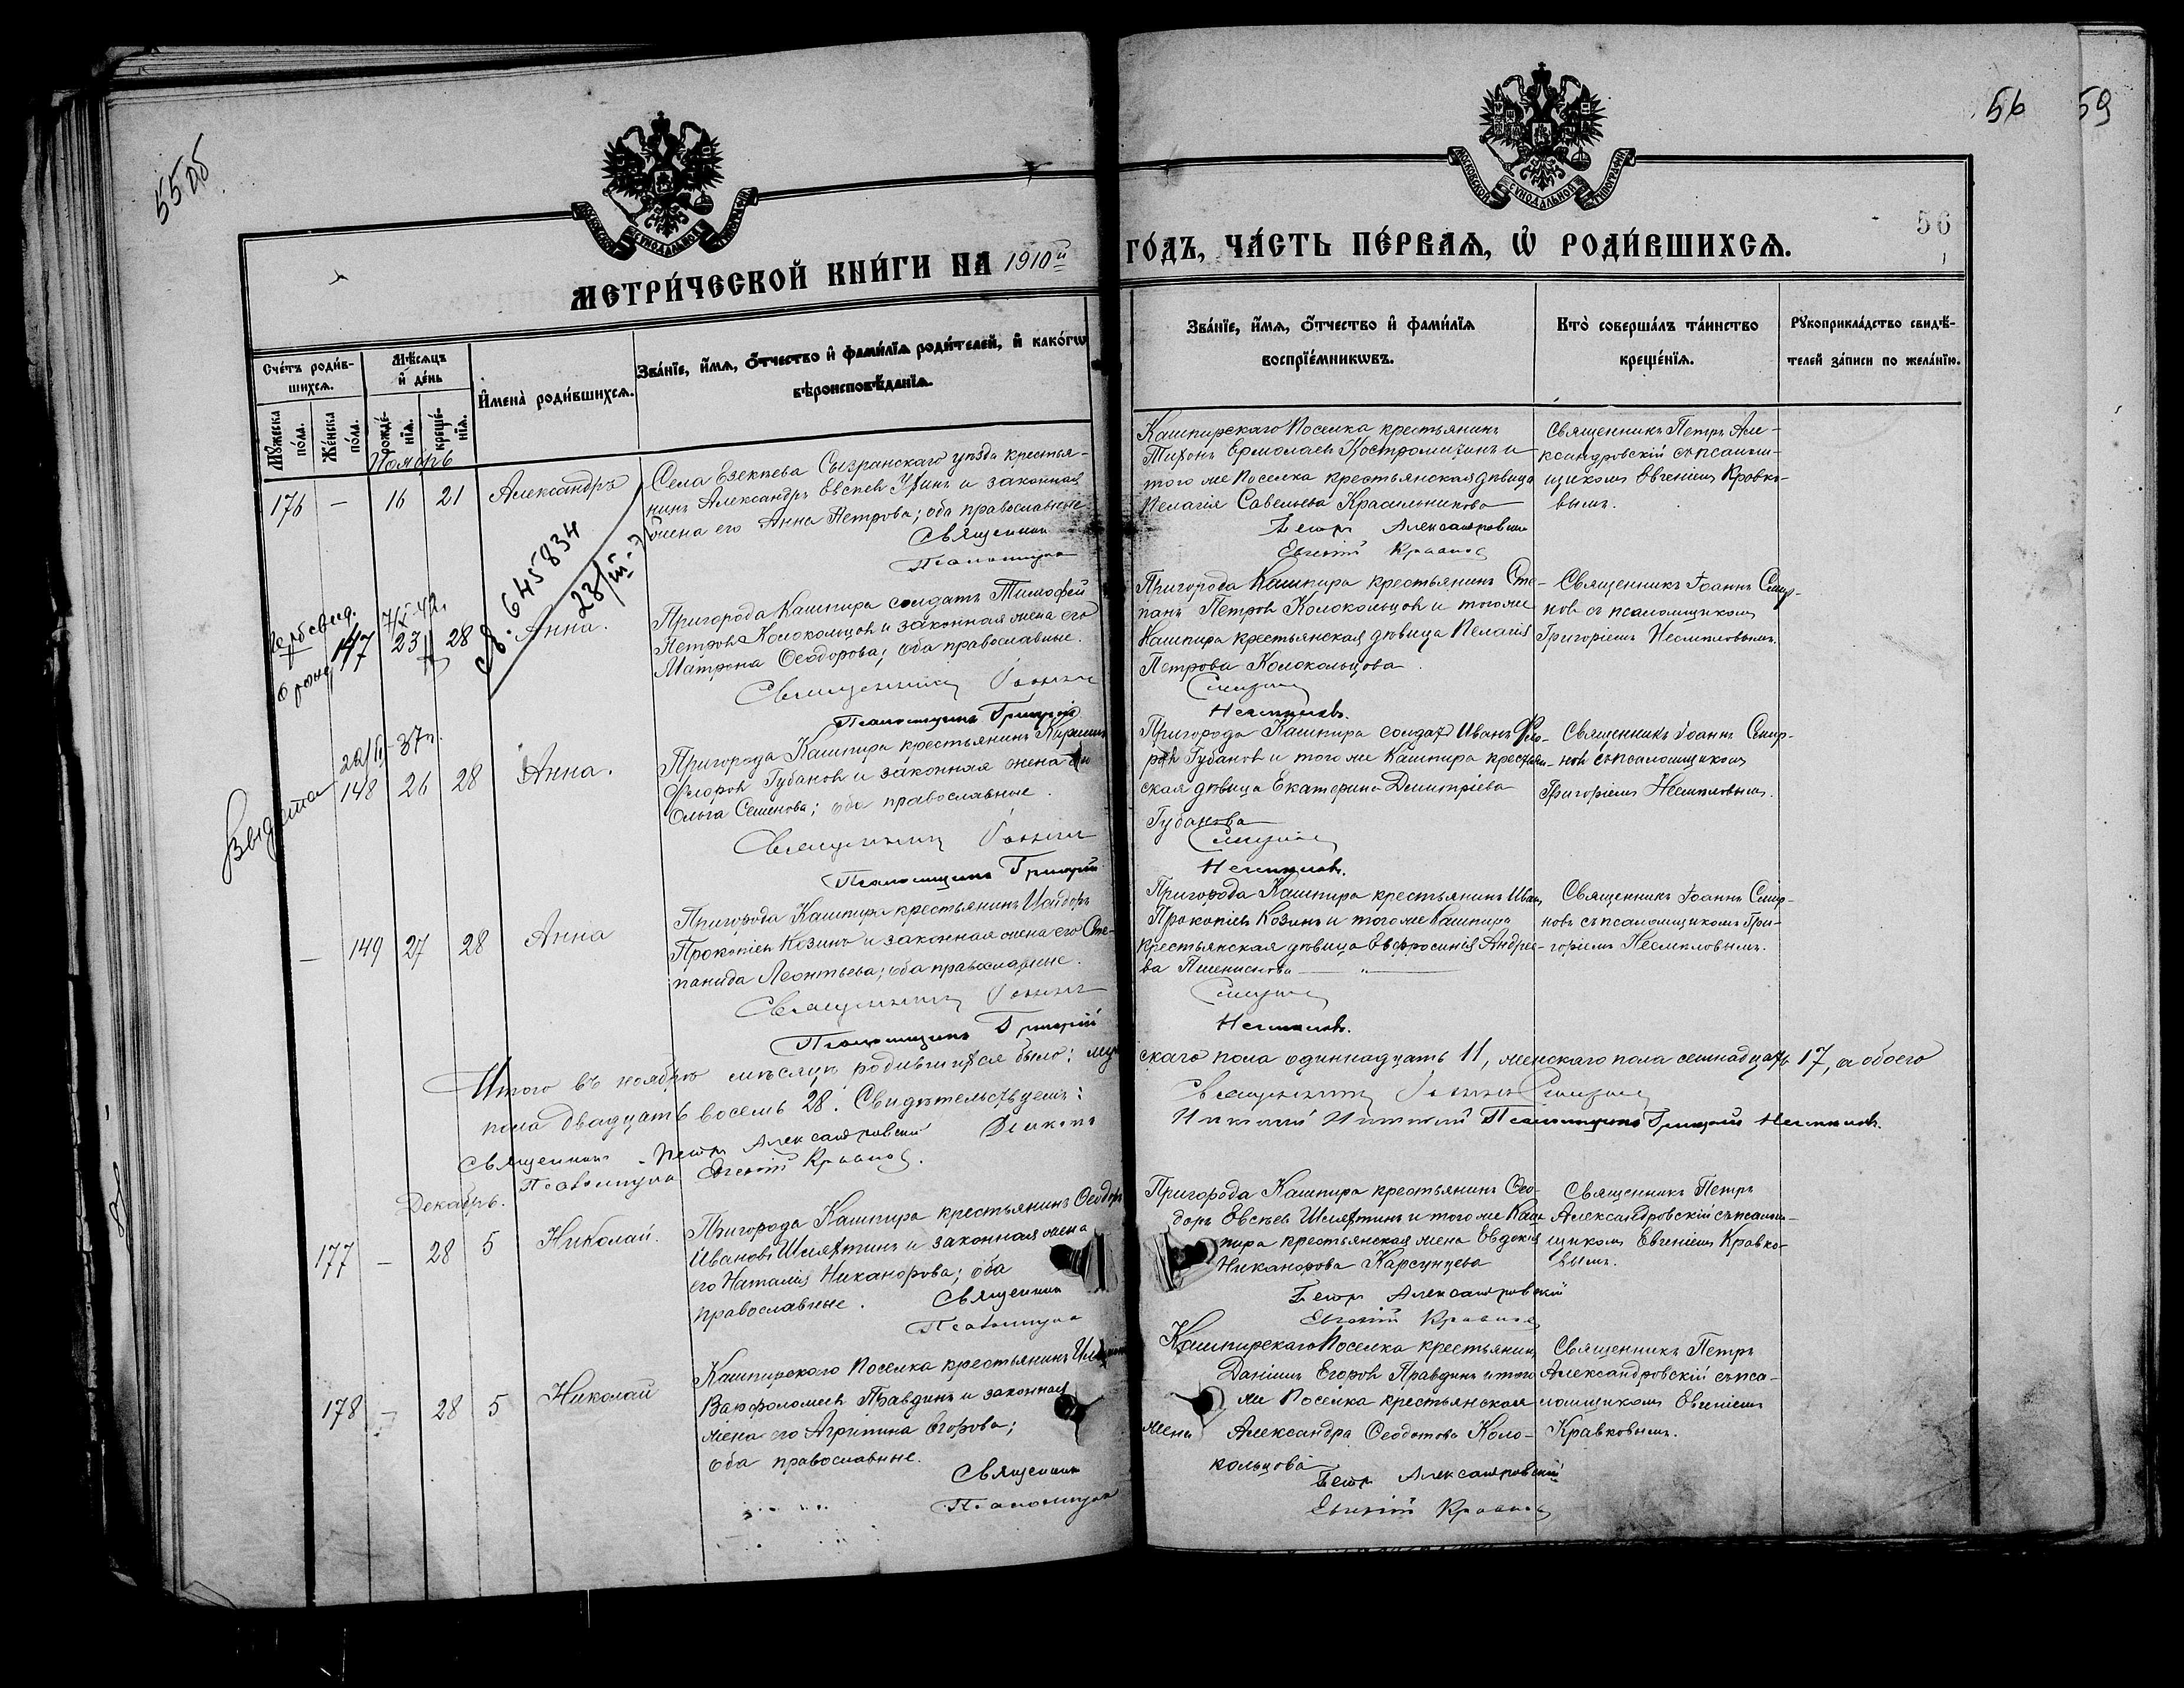 55об
56
59
56
МОСКОВСКОЙ СѴНОДАЛЬНОЙ ТИПОГРАФІИ
МОСКОВСКОЙ СѴНОДАЛЬНОЙ ТИПОГРАФІИ
МЕТРИ́ЧЕСКОЙ КНИ́ГИ НА 1910й
ГО́ДЪ, ЧА́СТЬ ПЕ́РВАѦ, Ѡ РОДИ́ВШИХСѦ.
Сче́тъ роди́в-
шихсѧ.
Мꙋжеска по́ла.
Же́нска по́ла.
Мѣ́сѧцъ и де́нь
рожде́-
нїѧ.
креще́-
нїѧ.
И҆мена̀ роди́вшихсѧ.
Зва́нїе, и҆́мѧ, о҆́тчество и҆ фами́лїѧ роди́телей, и҆ како́гѡ
вѣроисповѣ́данїѧ.
Зва́нїе, и҆́мѧ, о҆́тчество и҆ фами́лїѧ
воспрїе́мникѡвъ.
Кто̀ соверша́лъ та́инство
креще́нїѧ.
Рꙋкоприкла́дство свидѣ́-
телей за́писи по жела́нїю.
Ноябрь
176 — 16 21 Александръ
Села Езекпева Сызранскаго уѣзда крестья-
нинъ Александръ Евсѣев и законная
жена его Анна Петрова; оба православные
Священник
Псаломщик
Кашпирскаго Поселка крестьянинъ
Тихонъ Ермолаев Костромитинъ и
того же Поселка крестьянская дѣвица
Пелагія Савельева Красильникова
Петр Александровский
Евгений Кравков
Священникъ Петръ Але-
ксандровскій съ псалом-
щикомъ Евгеніемъ Кравко-
вымъ.
св. 645834
23/III-
о рожд
147 23 28 Анна.
Пригорода Кашпира солдатъ Тимофей
Петровъ Колокольцовъ и законная жена его
Матрона Ѳеодорова; оба православные.
Священникъ Іоаннъ
Псаломщикъ Григорій
Пригорода Кашпира крестьянинъ Сте-
панъ Петров Колокольцов и того же
Кашпира крестьянская дѣвица Пелагія
Петрова Колокольцова
Смирнов
Несмѣловъ.
Священникъ Іоаннъ Смир-
нов съ псаломщикомъ
Григоріемъ Несмѣловымъ.
Выдана
22/II-37г.
148 26 28 Анна.
Пригорода Кашпира крестьянинъ
Флоров Губанов и законная жена его
Ольга Семенова; оба православные.
Священникъ Іоаннъ
Псаломщикъ Григорій
Пригорода Кашпира солдат Иванъ Фло-
ров Губанов и того же Кашпира крестьян-
ская дѣвица Екатерина Димитріева
Губанова
Смирнов
Несмѣловъ.
Священникъ Іоаннъ Смир-
нов съ псаломщикомъ
Григоріемъ Несмѣловымъ.
— 149 27 28 Анна
Пригорода Кашпира крестьянинъ Исидоръ
Прокопіев Козинъ и законная жена его Сте-
панида Леонтьева; оба православные.
Священникъ Іоаннъ
Псаломщикъ Григорій
Пригорода Кашпира крестьянинъ Иван
Прокопіев Козинъ и того же Кашпира
крестьянская дѣвица Евфросинія Андрее-
ва Пшенискова
Смирнов
Несмѣловъ.
Священникъ Іоаннъ Смир-
новъ съ псаломщикомъ Гри-
горіемъ Несмѣловымъ.
Итого въ ноябрѣ мѣсяцѣ родившихся было: муж
скаго пола одиннадцать 11, женскаго пола семнадцать 17, а обоего
пола двадцать восемь 28. Свидѣтельствуемъ:
Священникъ Іоаннъ Смирнов
Священникъ Петръ Александровский Диаконъ
Псаломщикъ Григорій Несмѣловъ.
Псаломщикъ Евгений Кравков.
Декабрь.
177 — 28 5 Николай.
Пригорода Кашпира крестьянинъ Ѳеодоръ
Ивановъ Шмяхтинъ и законная жена
его Наталія Никанорова; оба
православные.
Священник
Псаломщик
Пригорода Кашпира крестьянинъ Ѳео-
доръ Евсѣев Шмяхтинъ и того же Каш
пира крестьянская жена Евдокія
Никанорова Карсунцева
Петр Александровский
Евгений Кравков
Священникъ Петръ
Александровскій съ псалом-
щикомъ Евгеніемъ Кравко-
вымъ.
178 — 28 5 Николай
Кашпирского Поселка крестьянинъ
Варфоломеев Правдинъ и законная
жена его Агрипина Егорова;
оба православные.
Священник
Псаломщик
Кашпирскаго Поселка крестьянин
Даніилъ Егоров Правдинъ и того
же Поселка крестьянская
жена Александра Ѳеодотова Коло-
кольцова
Петр Александровский
Евгений Кравков
Священникъ Петръ
Александровскій съ пса-
ломщикомъ Евгеніемъ
Кравковымъ.